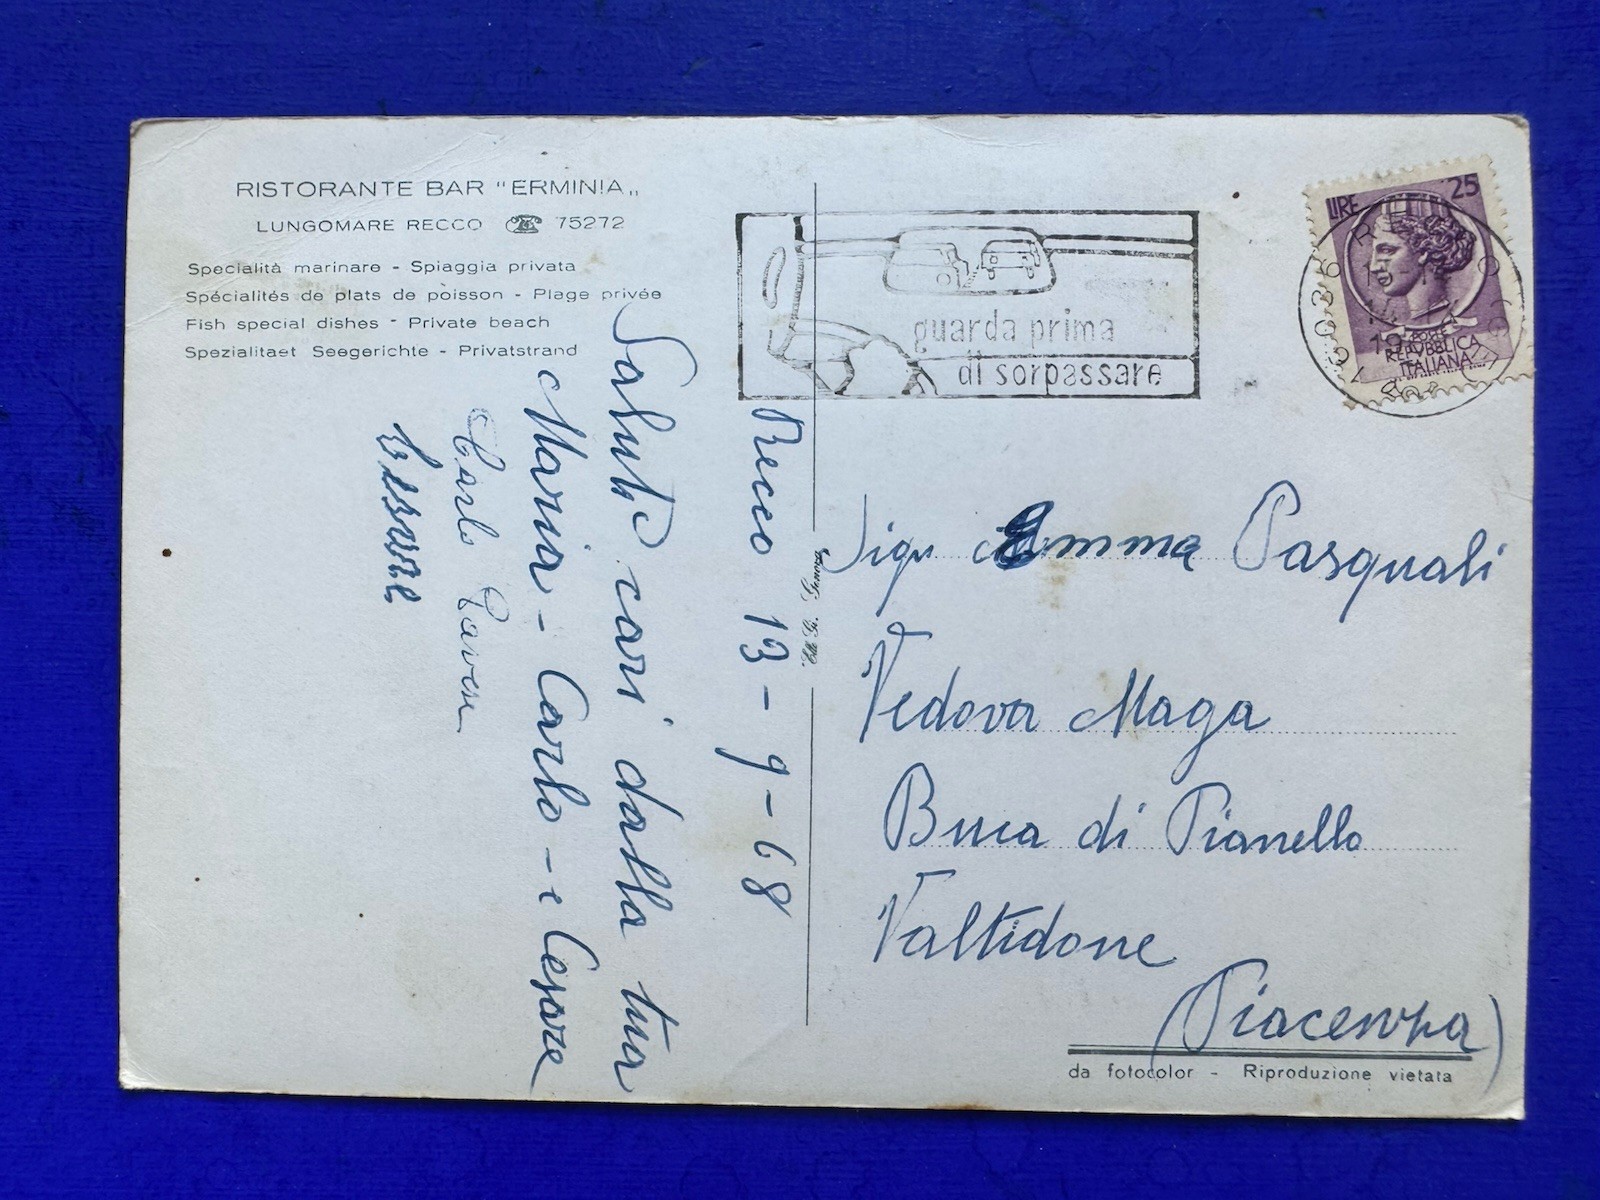 RISTORANTE BAR "ERMINIA„
LUNGOMARE RECCO ☎ 75272
Specialità marinare - Spiaggia privata
Spécialités de plats de poisson - Plage privée
Fish special dishes - Private beach
Spezialitaet Seegerichte - Privatstrand
guarda prima
di sorpassare
LIRE 25
POSTE
REPUBBLICA
ITALIANA
16036 RECCO
Recco 13-9-68
Saluti cari dalla tua
Maria - Carlo - e Cesare
Carlo Pavesi
Cesare
Sigr Emma Pasquali
Vedova Maga
Buca di Pianello
Valtidone
(Piacenza)
da fotocolor - Riproduzione vietata